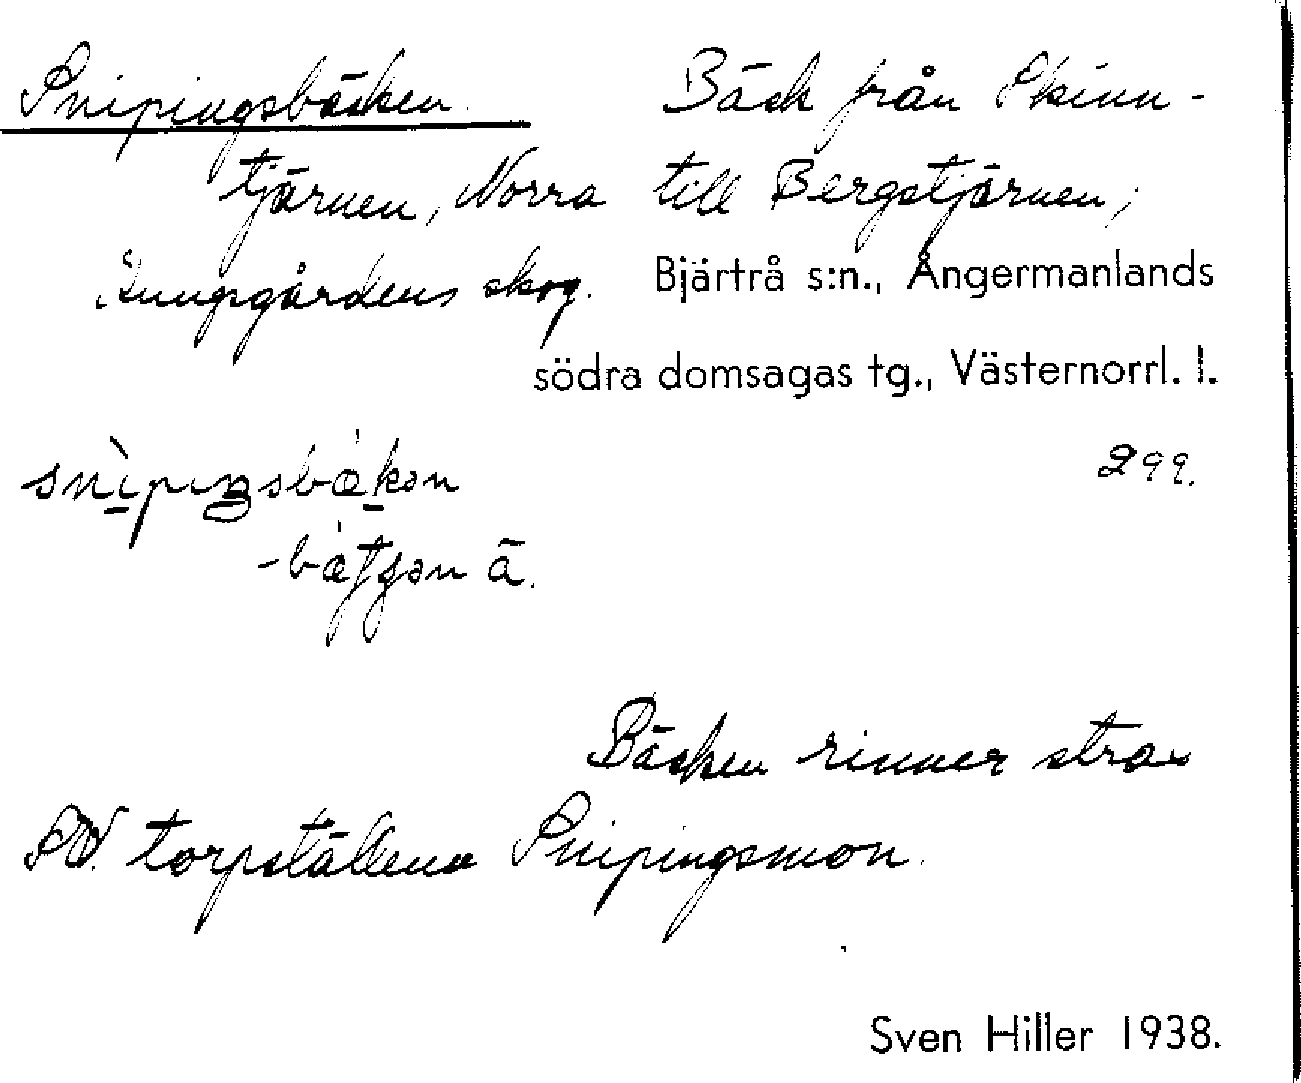 Snipingsbäcken. Bäck från Skinn-
tjärnen, Norra till Bergstjärnen,
skog. Bjärtrå s:n., Ångermanlands
södra domsagas tg., Västernorrl. l.
299.
ā.
Bäcken rinner strax
SV. torpställena Snipingsmon.
Sven Hiller 1938.